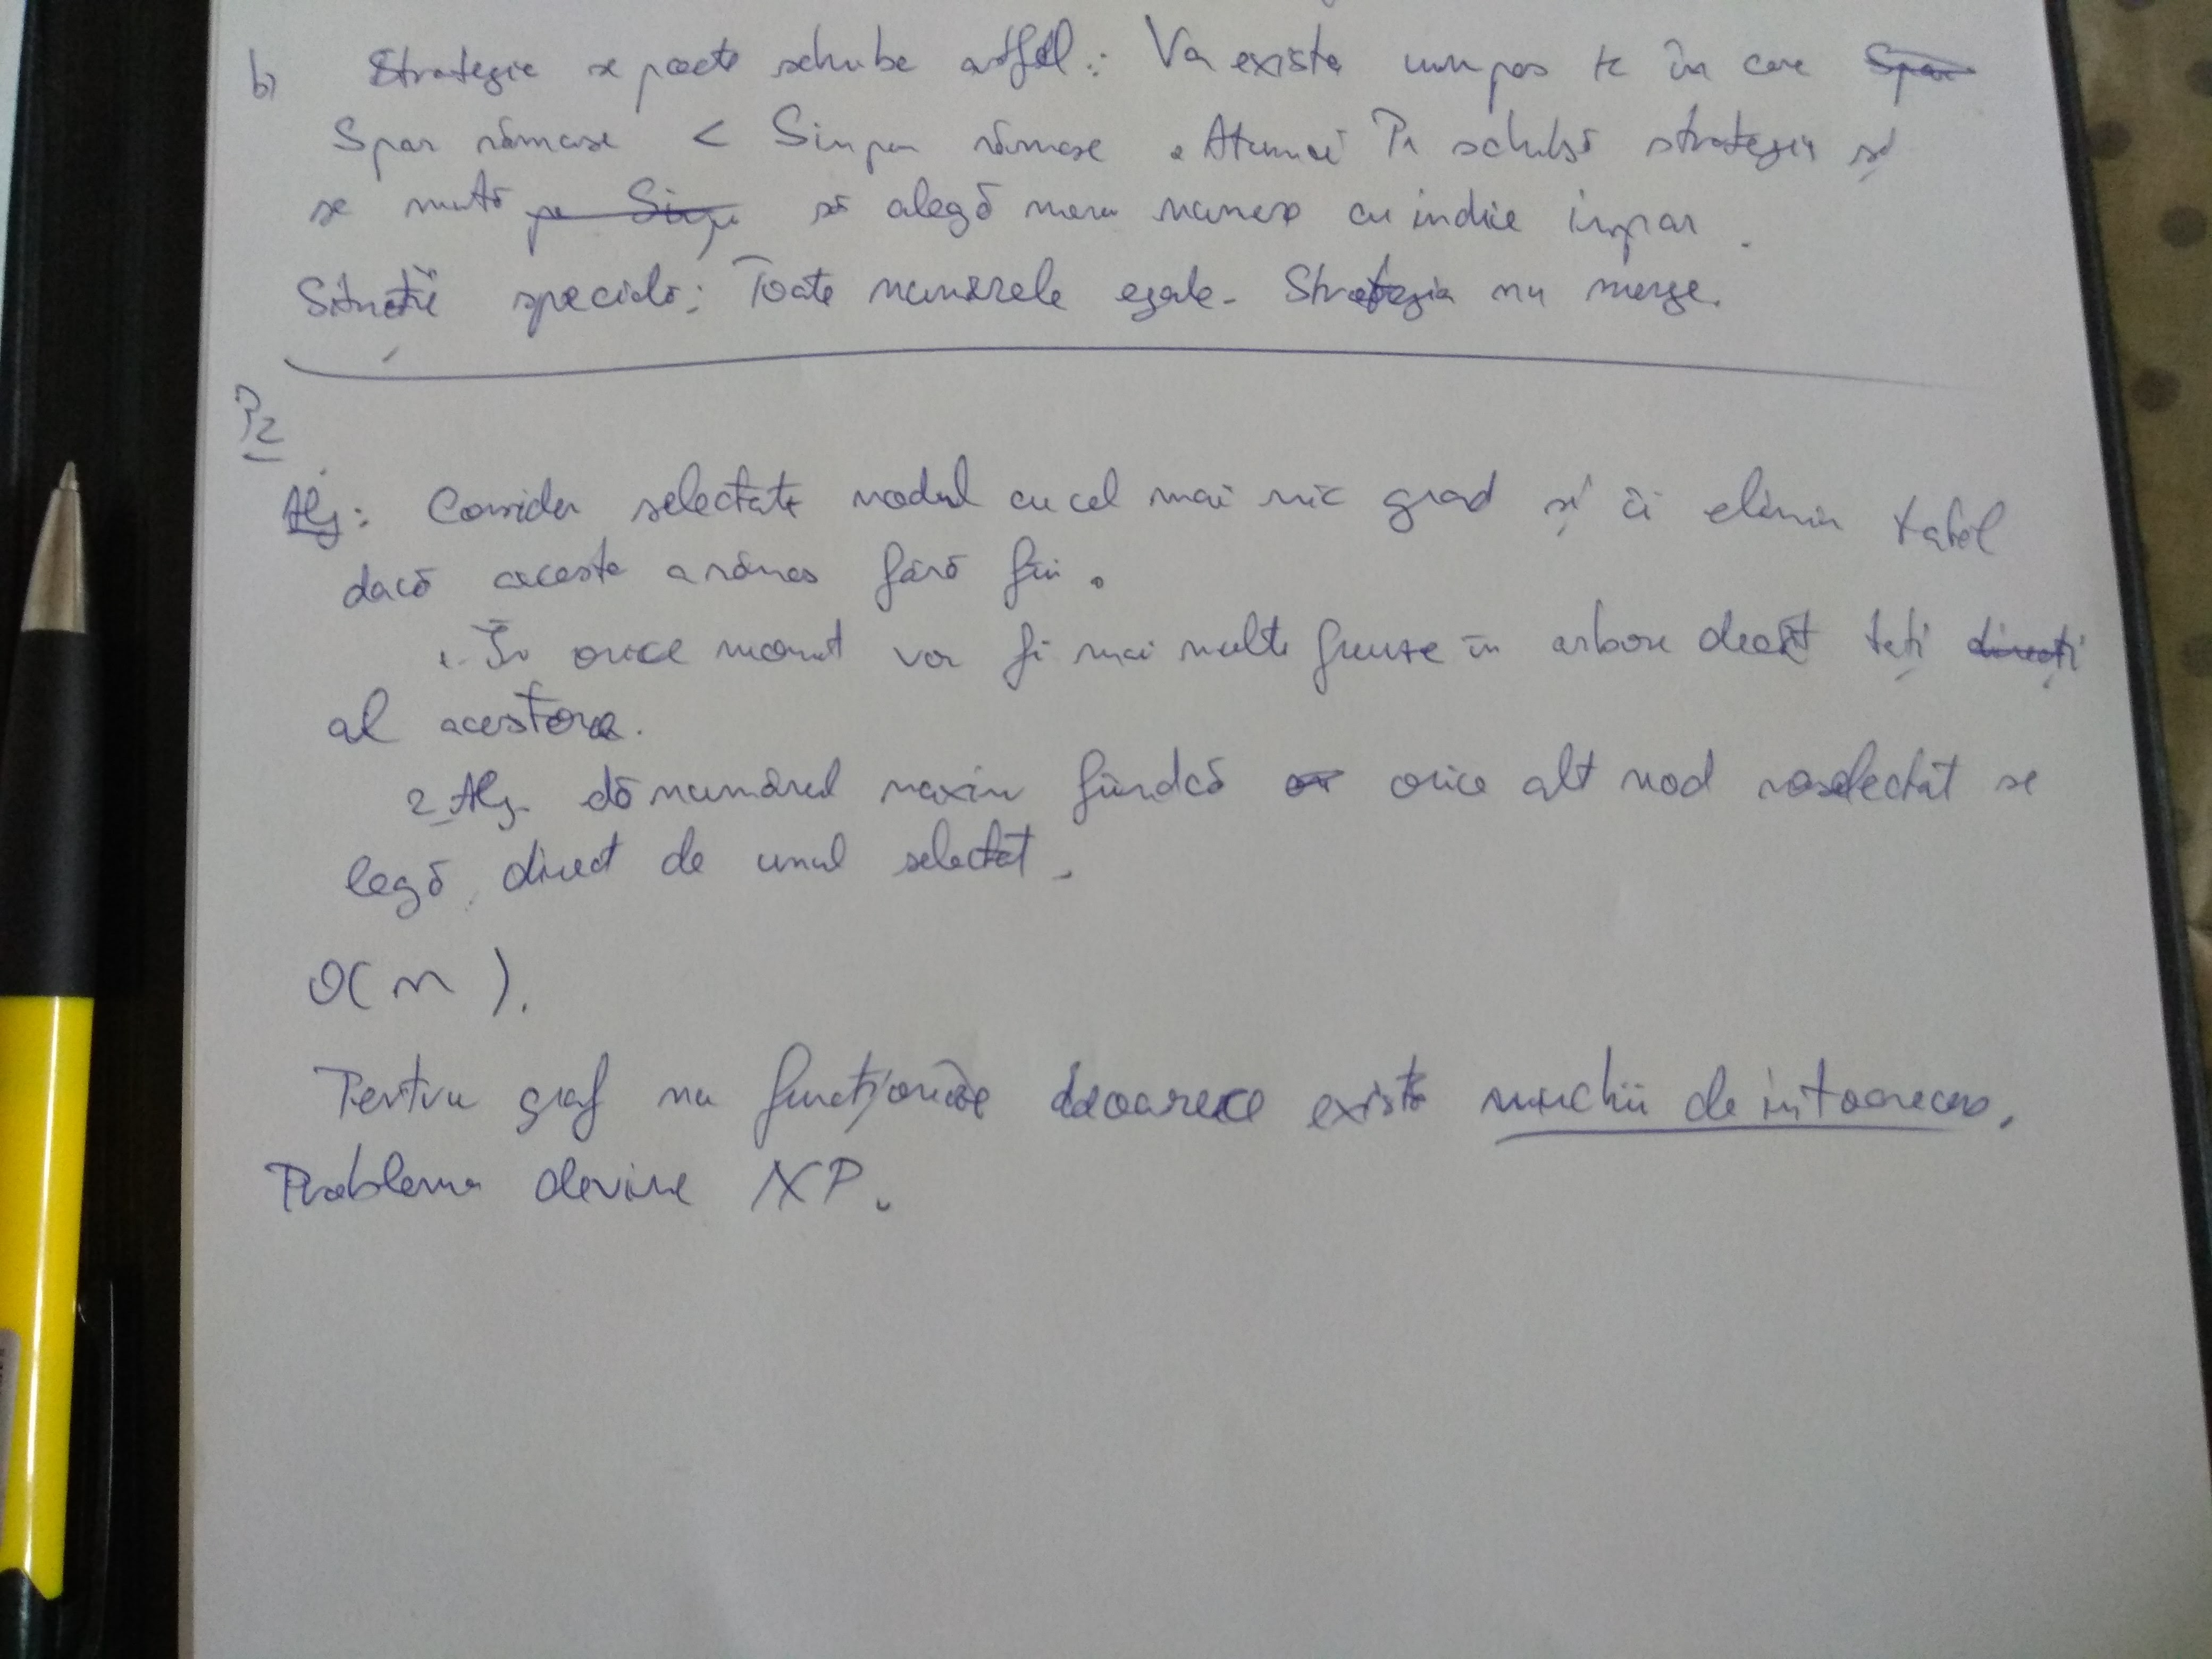 b) Strategie se poate schimba astfel: Va exista un pas k în care Spar
Spar rămase < Simpar rămase. Atunci P1 schimbă strategia și
se mută pe Simp să alegă mereu numere cu indice impar.
Situație specială: Toate numerele egale. Strategia nu merge.
P2
Alg: Consider selectate nodul cu cel mai mic grad și îi elimin tatăl
dacă acesta a rămas fără fii.
1. În orice moment vor fi mai multe frunze în arbore decât tați direcți
al acestora.
2. Alg. dă numărul maxim fiindcă orice alt nod neselectat se
legă direct de unul selectat.
O(n).
Pentru graf nu funcționează deoarece există muchii de întoarcere.
Problema devine NP.